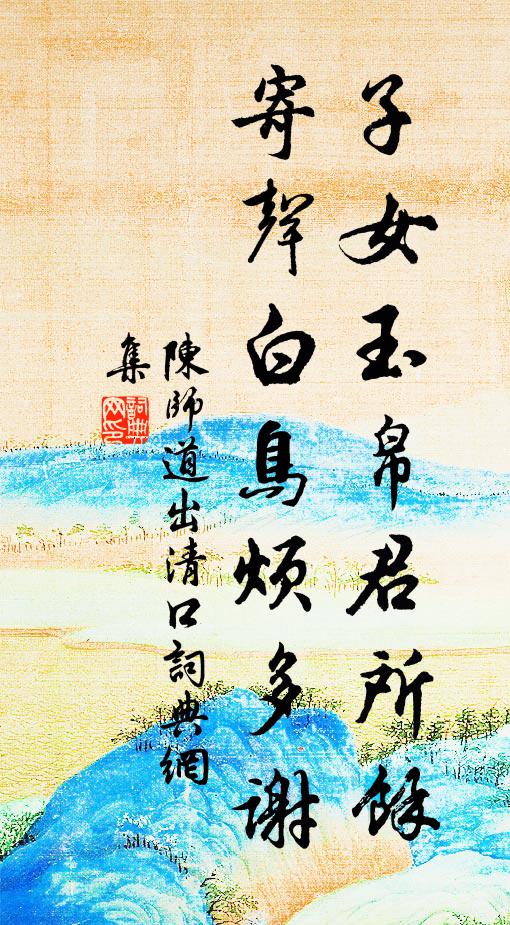 子女玉帛君所餘
寄聲白鳥煩多謝
陳師道出清口詞典網
集
詞典網印